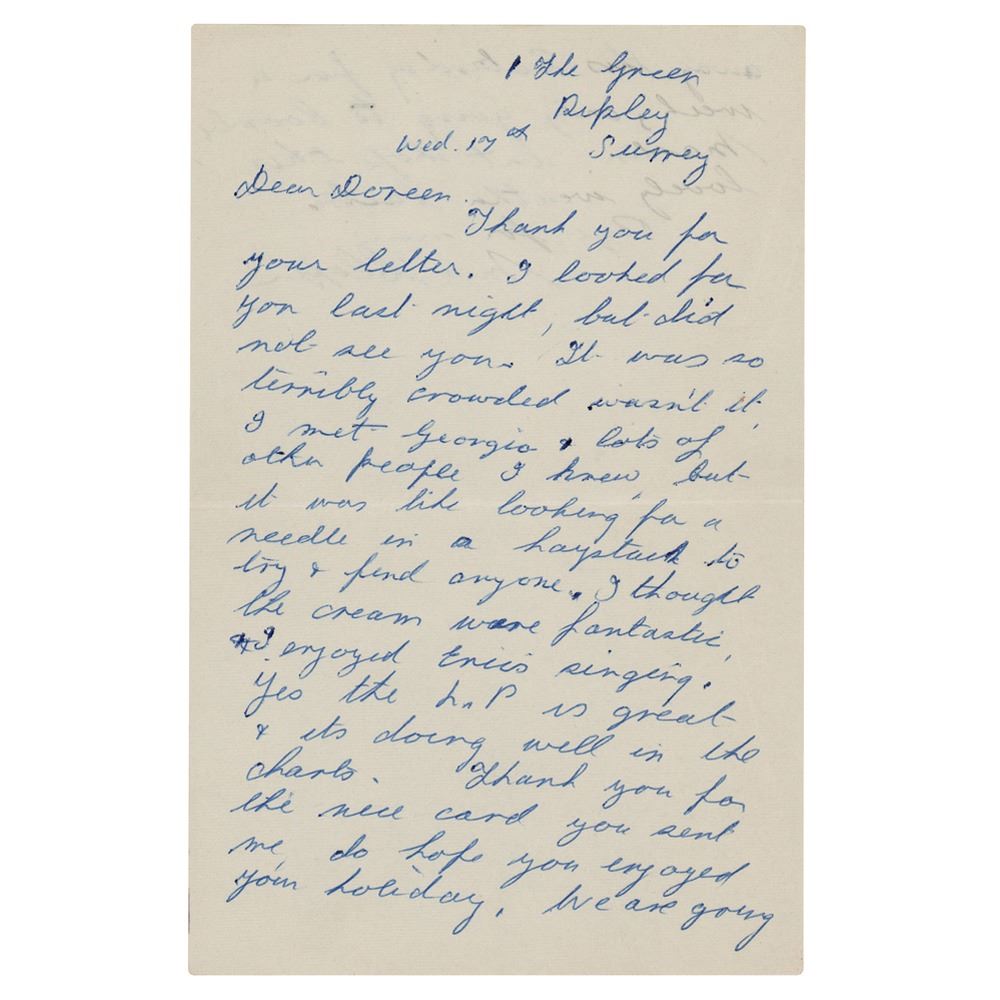 1 The Green
Ripley
Wed. 17th Surrey
Dear Doreen.
Thank you for
your letter. I looked for
you last night, but did
not see you. It was so
terribly crowded wasn't it,
I met Georgia & lots of
other people I knew, but
it was like looking for a
needle in a haystack to
try & find anyone. I thought
the cream were fantastic,
& I enjoyed Eric's singing.
Yes the L.P is great
& its doing well in the
charts. Thank you for
the nice card you sent
me, do hope you enjoyed
your holiday. We are going